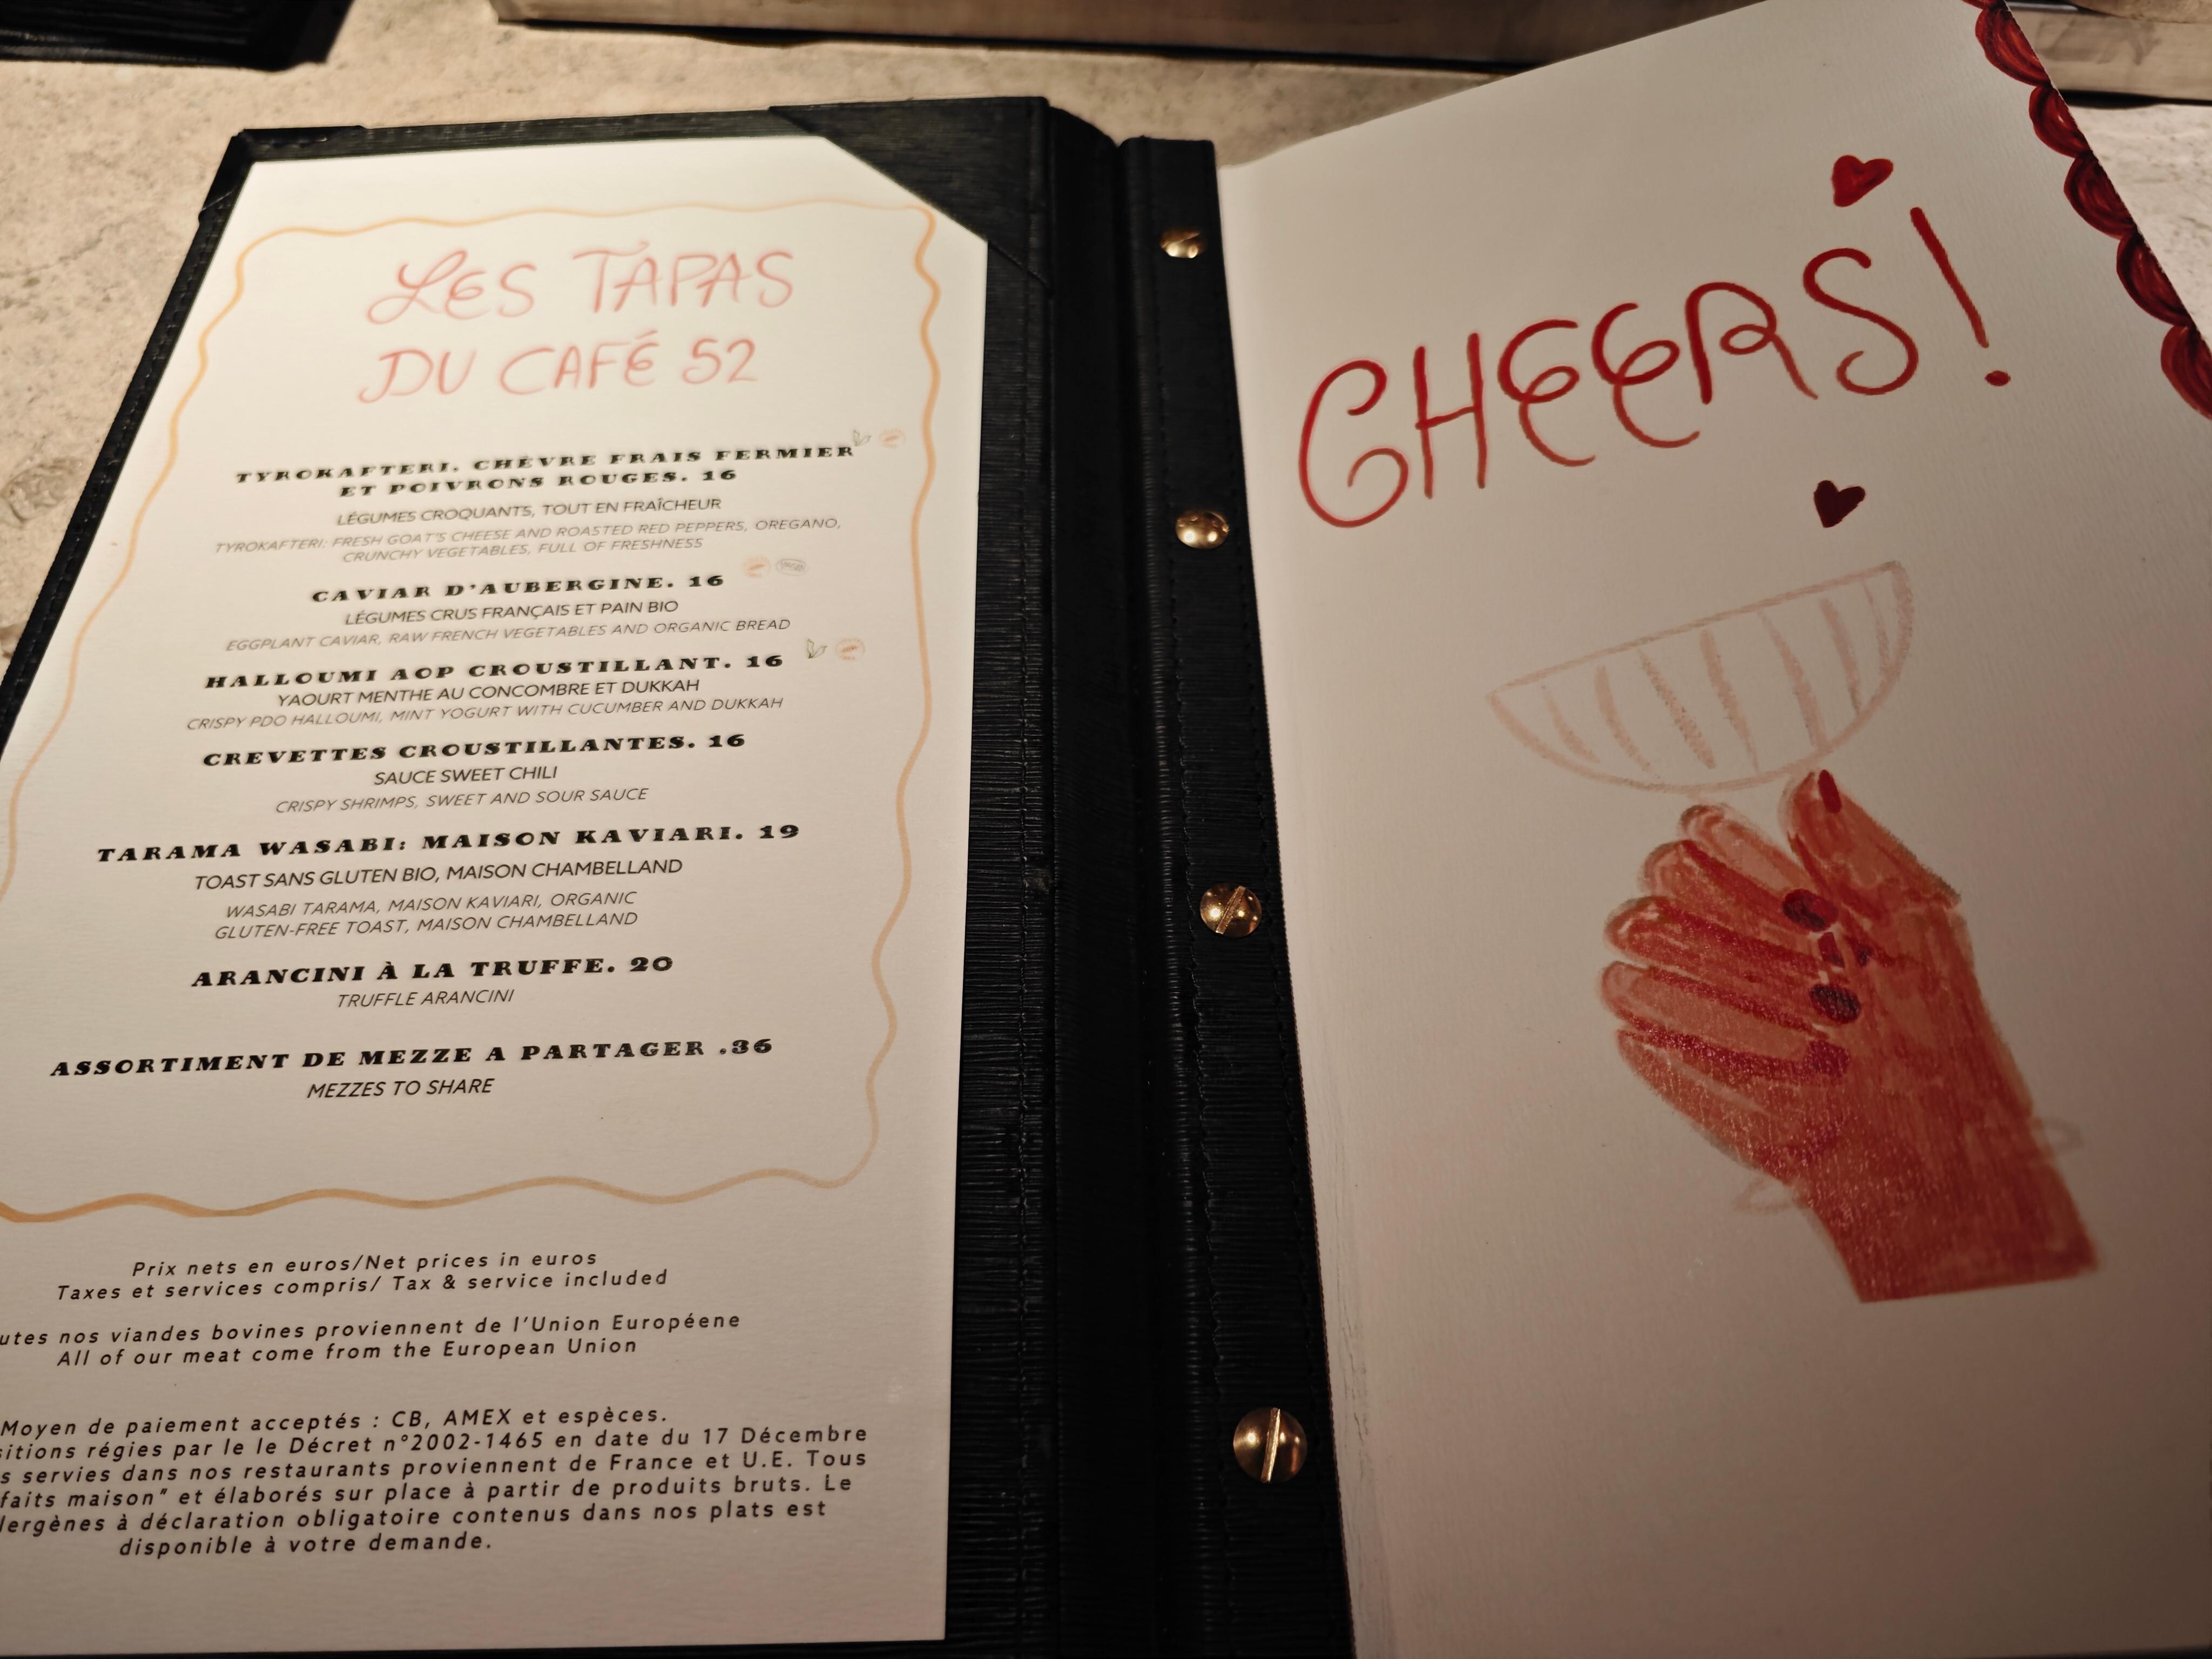 LES TAPAS
DU CAFÉ 52
TYROKAFTERI. CHÈVRE FRAIS FERMIER
ET POIVRONS ROUGES. 16
LÉGUMES CROQUANTS, TOUT EN FRAÎCHEUR
TYROKAFTERI: FRESH GOAT'S CHEESE AND ROASTED RED PEPPERS, OREGANO,
CRUNCHY VEGETABLES, FULL OF FRESHNESS
CAVIAR D'AUBERGINE. 16
LÉGUMES CRUS FRANÇAIS ET PAIN BIO
EGGPLANT CAVIAR, RAW FRENCH VEGETABLES AND ORGANIC BREAD
HALLOUMI AOP CROUSTILLANT. 16
YAOURT MENTHE AU CONCOMBRE ET DUKKAH
CRISPY PDO HALLOUMI, MINT YOGURT WITH CUCUMBER AND DUKKAH
CREVETTES CROUSTILLANTES. 16
SAUCE SWEET CHILI
CRISPY SHRIMPS, SWEET AND SOUR SAUCE
TARAMA WASABI: MAISON KAVIARI. 19
TOAST SANS GLUTEN BIO, MAISON CHAMBELLAND
WASABI TARAMA, MAISON KAVIARI, ORGANIC
GLUTEN-FREE TOAST, MAISON CHAMBELLAND
ARANCINI À LA TRUFFE. 20
TRUFFLE ARANCINI
ASSORTIMENT DE MEZZE A PARTAGER .36
MEZZES TO SHARE
Prix nets en euros/Net prices in euros
Taxes et services compris/ Tax & service included
utes nos viandes bovines proviennent de l'Union Européene
All of our meat come from the European Union
Moyen de paiement acceptés : CB, AMEX et espèces.
sitions régies par le le Décret n°2002-1465 en date du 17 Décembre
s servies dans nos restaurants proviennent de France et U.E. Tous
faits maison" et élaborés sur place à partir de produits bruts. Le
lergènes à déclaration obligatoire contenus dans nos plats est
disponible à votre demande.
CHEERS!